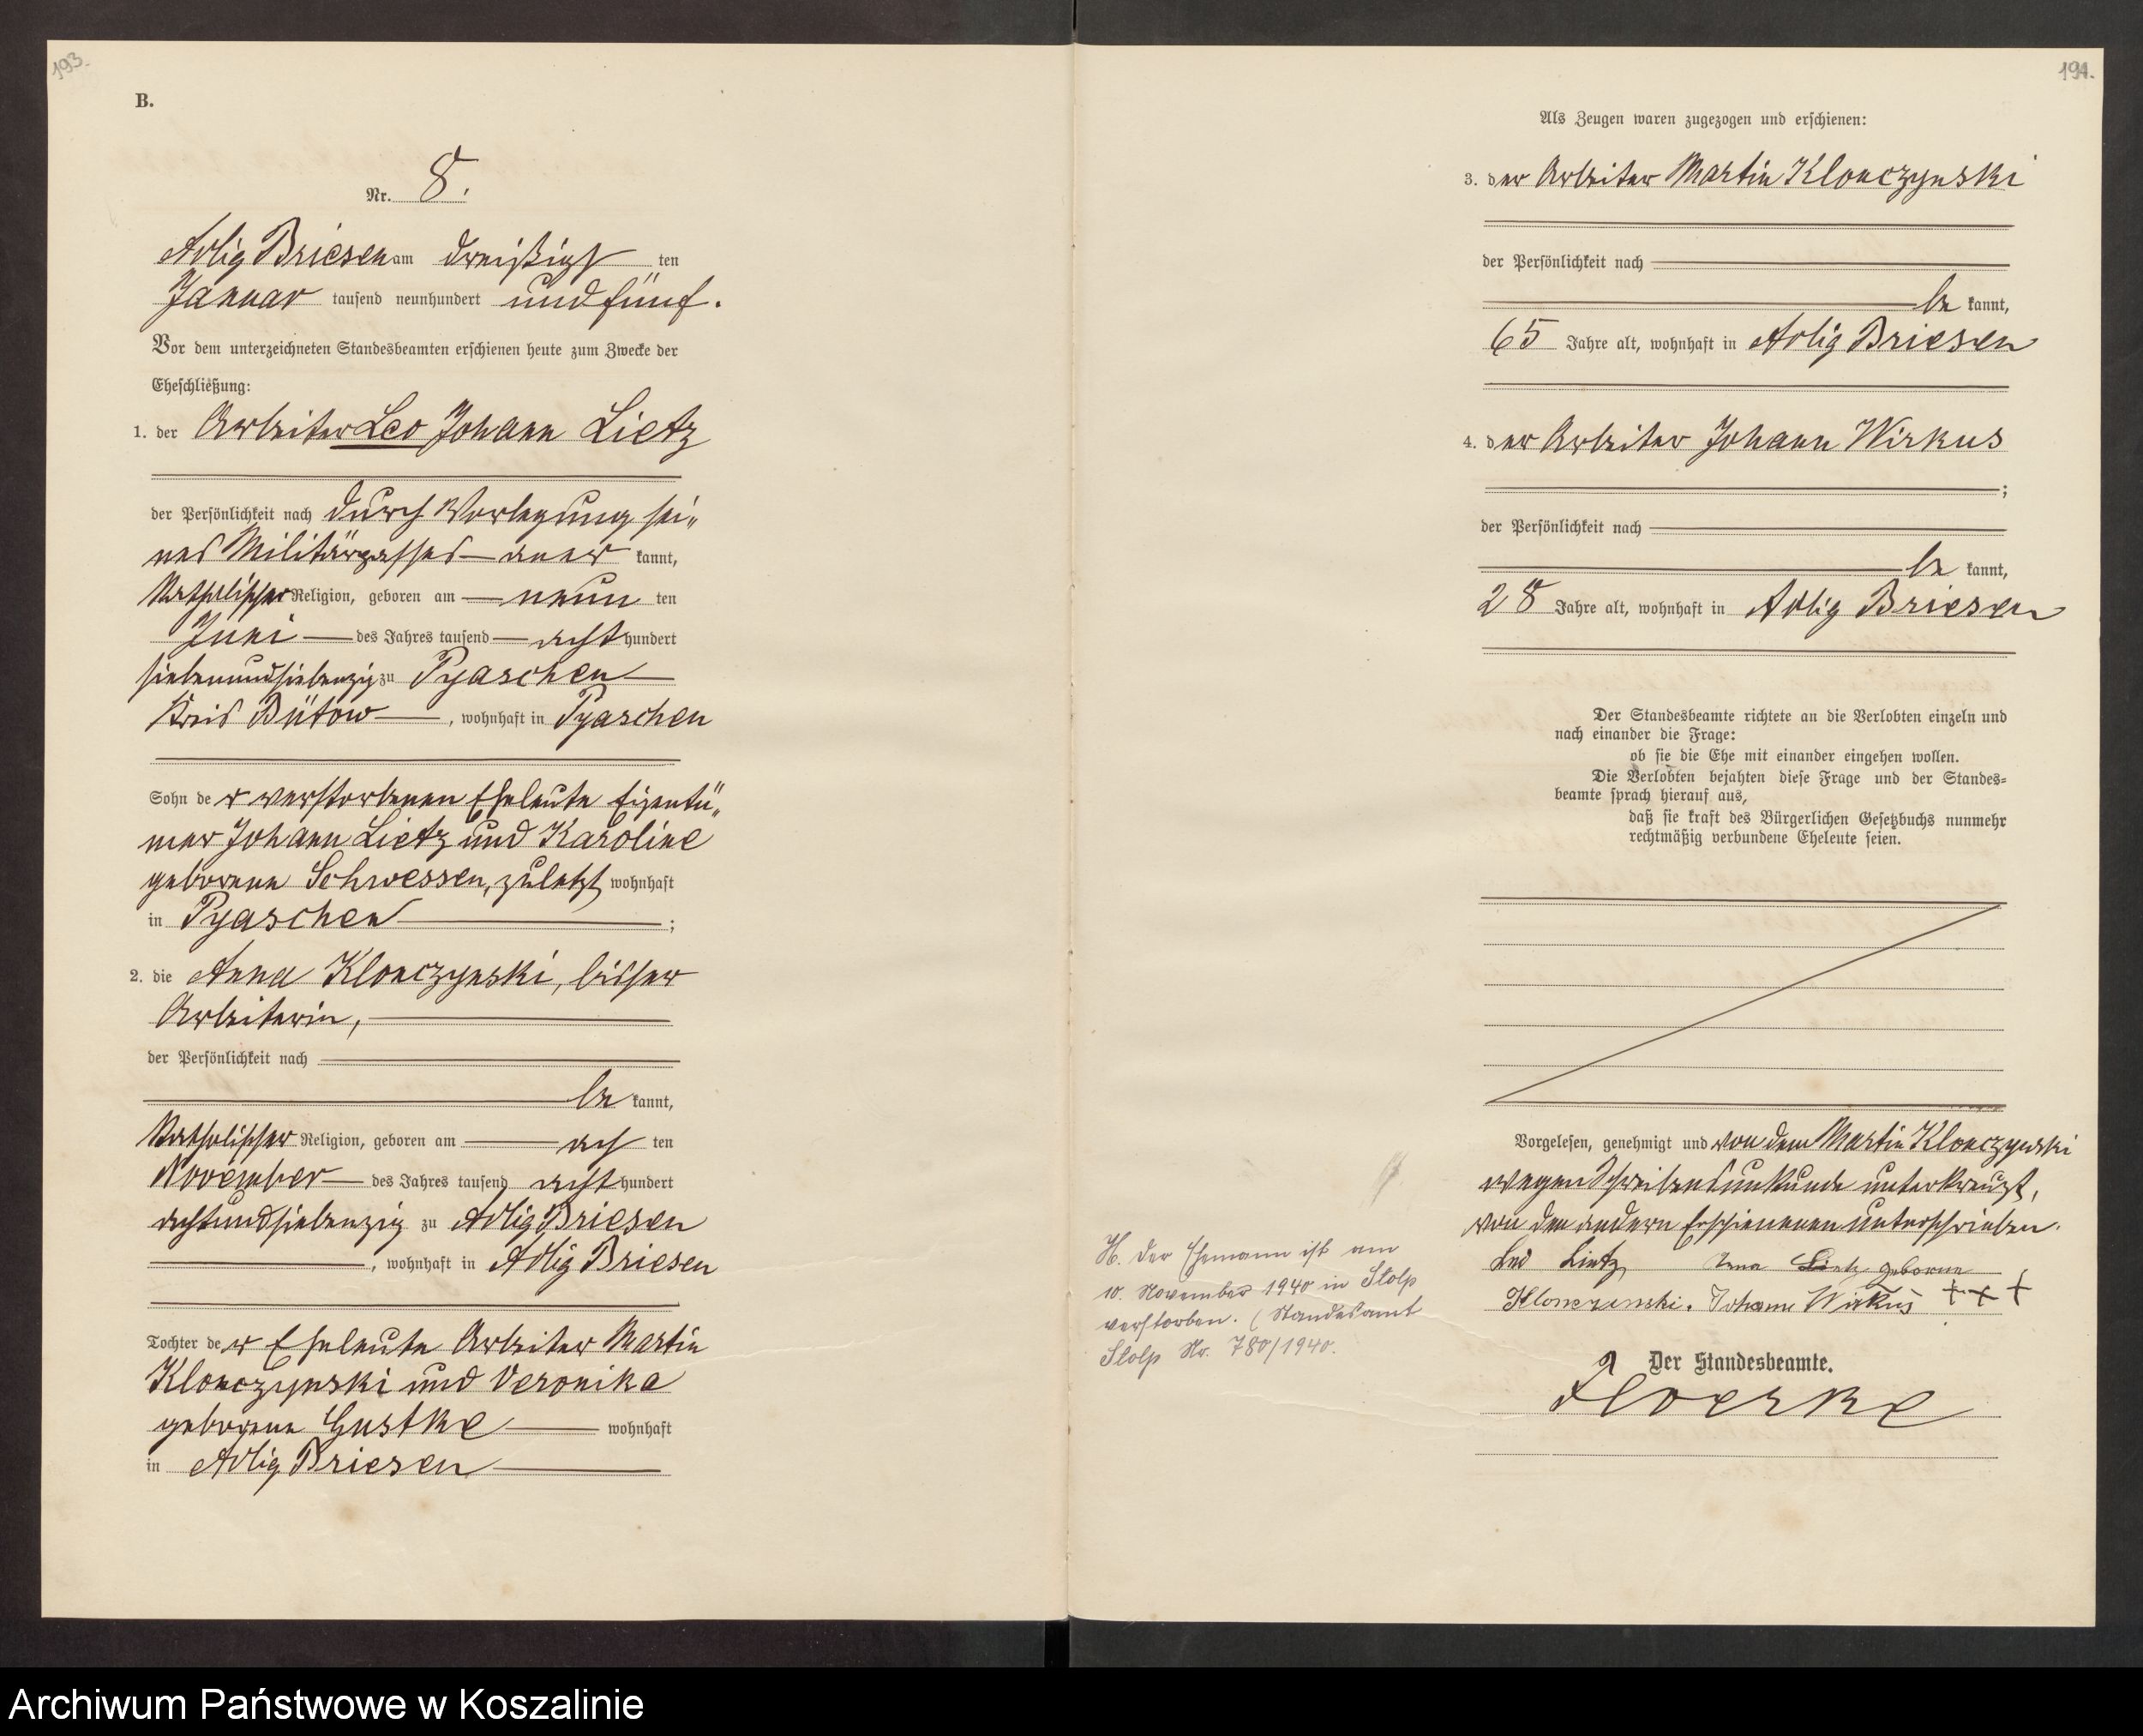 193.
B.
Nr. 8.
Adlig Briesen am dreißigs ten
Januar tausend neunhundert und fünf.
Vor dem unterzeichneten Standesbeamten erschienen heute zum Zwecke der
Eheschließung:
1. der Arbeiter Leo Johann Lietz
der Persönlichkeit nach durch Vorlegung sei„
nes Militärpasses aner kannt,
katholischer Religion, geboren am neun ten
Juni des Jahres tausend acht hundert
siebenundsiebenzig zu Pyaschen
Kreis Bütow, wohnhaft in Pyaschen
Sohn de r verstorbenen Eheleute Eigentü„
mer Johann Lietz und Karoline
geborene Schwessen, zuletzt wohnhaft
in Pyaschen ;
2. die Anna Klonczynski, bisher
Arbeiterin,
der Persönlichkeit nach
be kannt,
katholischer Religion, geboren am ach ten
November des Jahres tausend acht hundert
achtundsiebenzig zu Adlig Briesen
, wohnhaft in Adlig Briesen
Tochter de r Eheleute Arbeiter Martin
Klonczynski und Veronika
geborene Gustke wohnhaft
in Adlig Briesen
194.
Als Zeugen waren zugezogen und erschienen:
3. der Arbeiter Martin Klonczynski
der Persönlichkeit nach
be kannt,
65 Jahre alt, wohnhaft in Adlig Briesen
4. der Arbeiter Johann Wirkus
;
der Persönlichkeit nach
be kannt,
28 Jahre alt, wohnhaft in Adlig Briesen
Der Standesbeamte richtete an die Verlobten einzeln und
nach einander die Frage:
ob sie die Ehe mit einander eingehen wollen.
Die Verlobten bejahten diese Frage und der Standes-
beamte sprach hierauf aus,
daß sie kraft des Bürgerlichen Gesetzbuchs nunmehr
rechtmäßig verbundene Eheleute seien.
Vorgelesen, genehmigt und von dem Martin Klonczynski
wegen Schreibensunkunde unterkreuzt,
von den andern Erschienenen unterschrieben.
Leo Lietz Anna Lietz geborene
Klonczynski. Johann Wirkus +++
H. Der Ehemann ist am
10. November 1940 in Stolp
verstorben. (Standesamt
Stolp Nr. 780/1940.
Der Standesbeamte.
Floerke
Archiwum Państwowe w Koszalinie